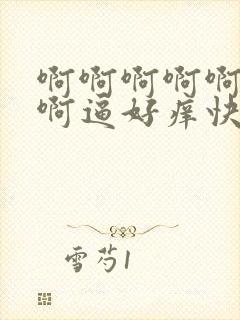 啊啊啊啊啊
啊逼好痒快
雪芍1